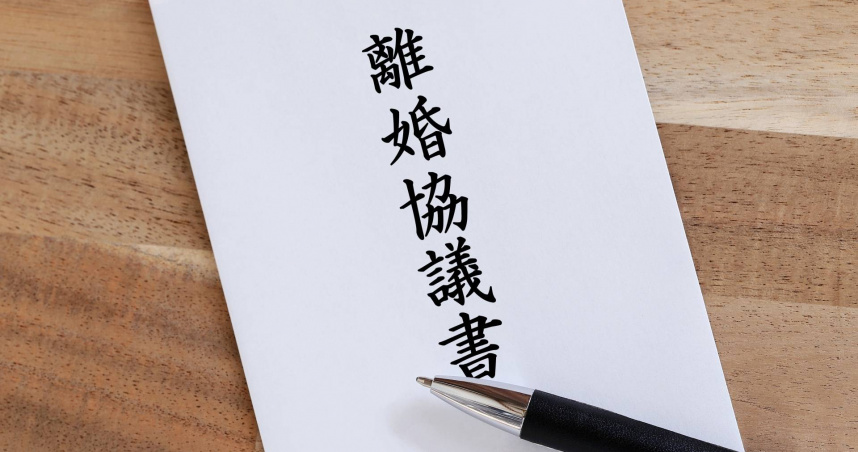 離婚協議書